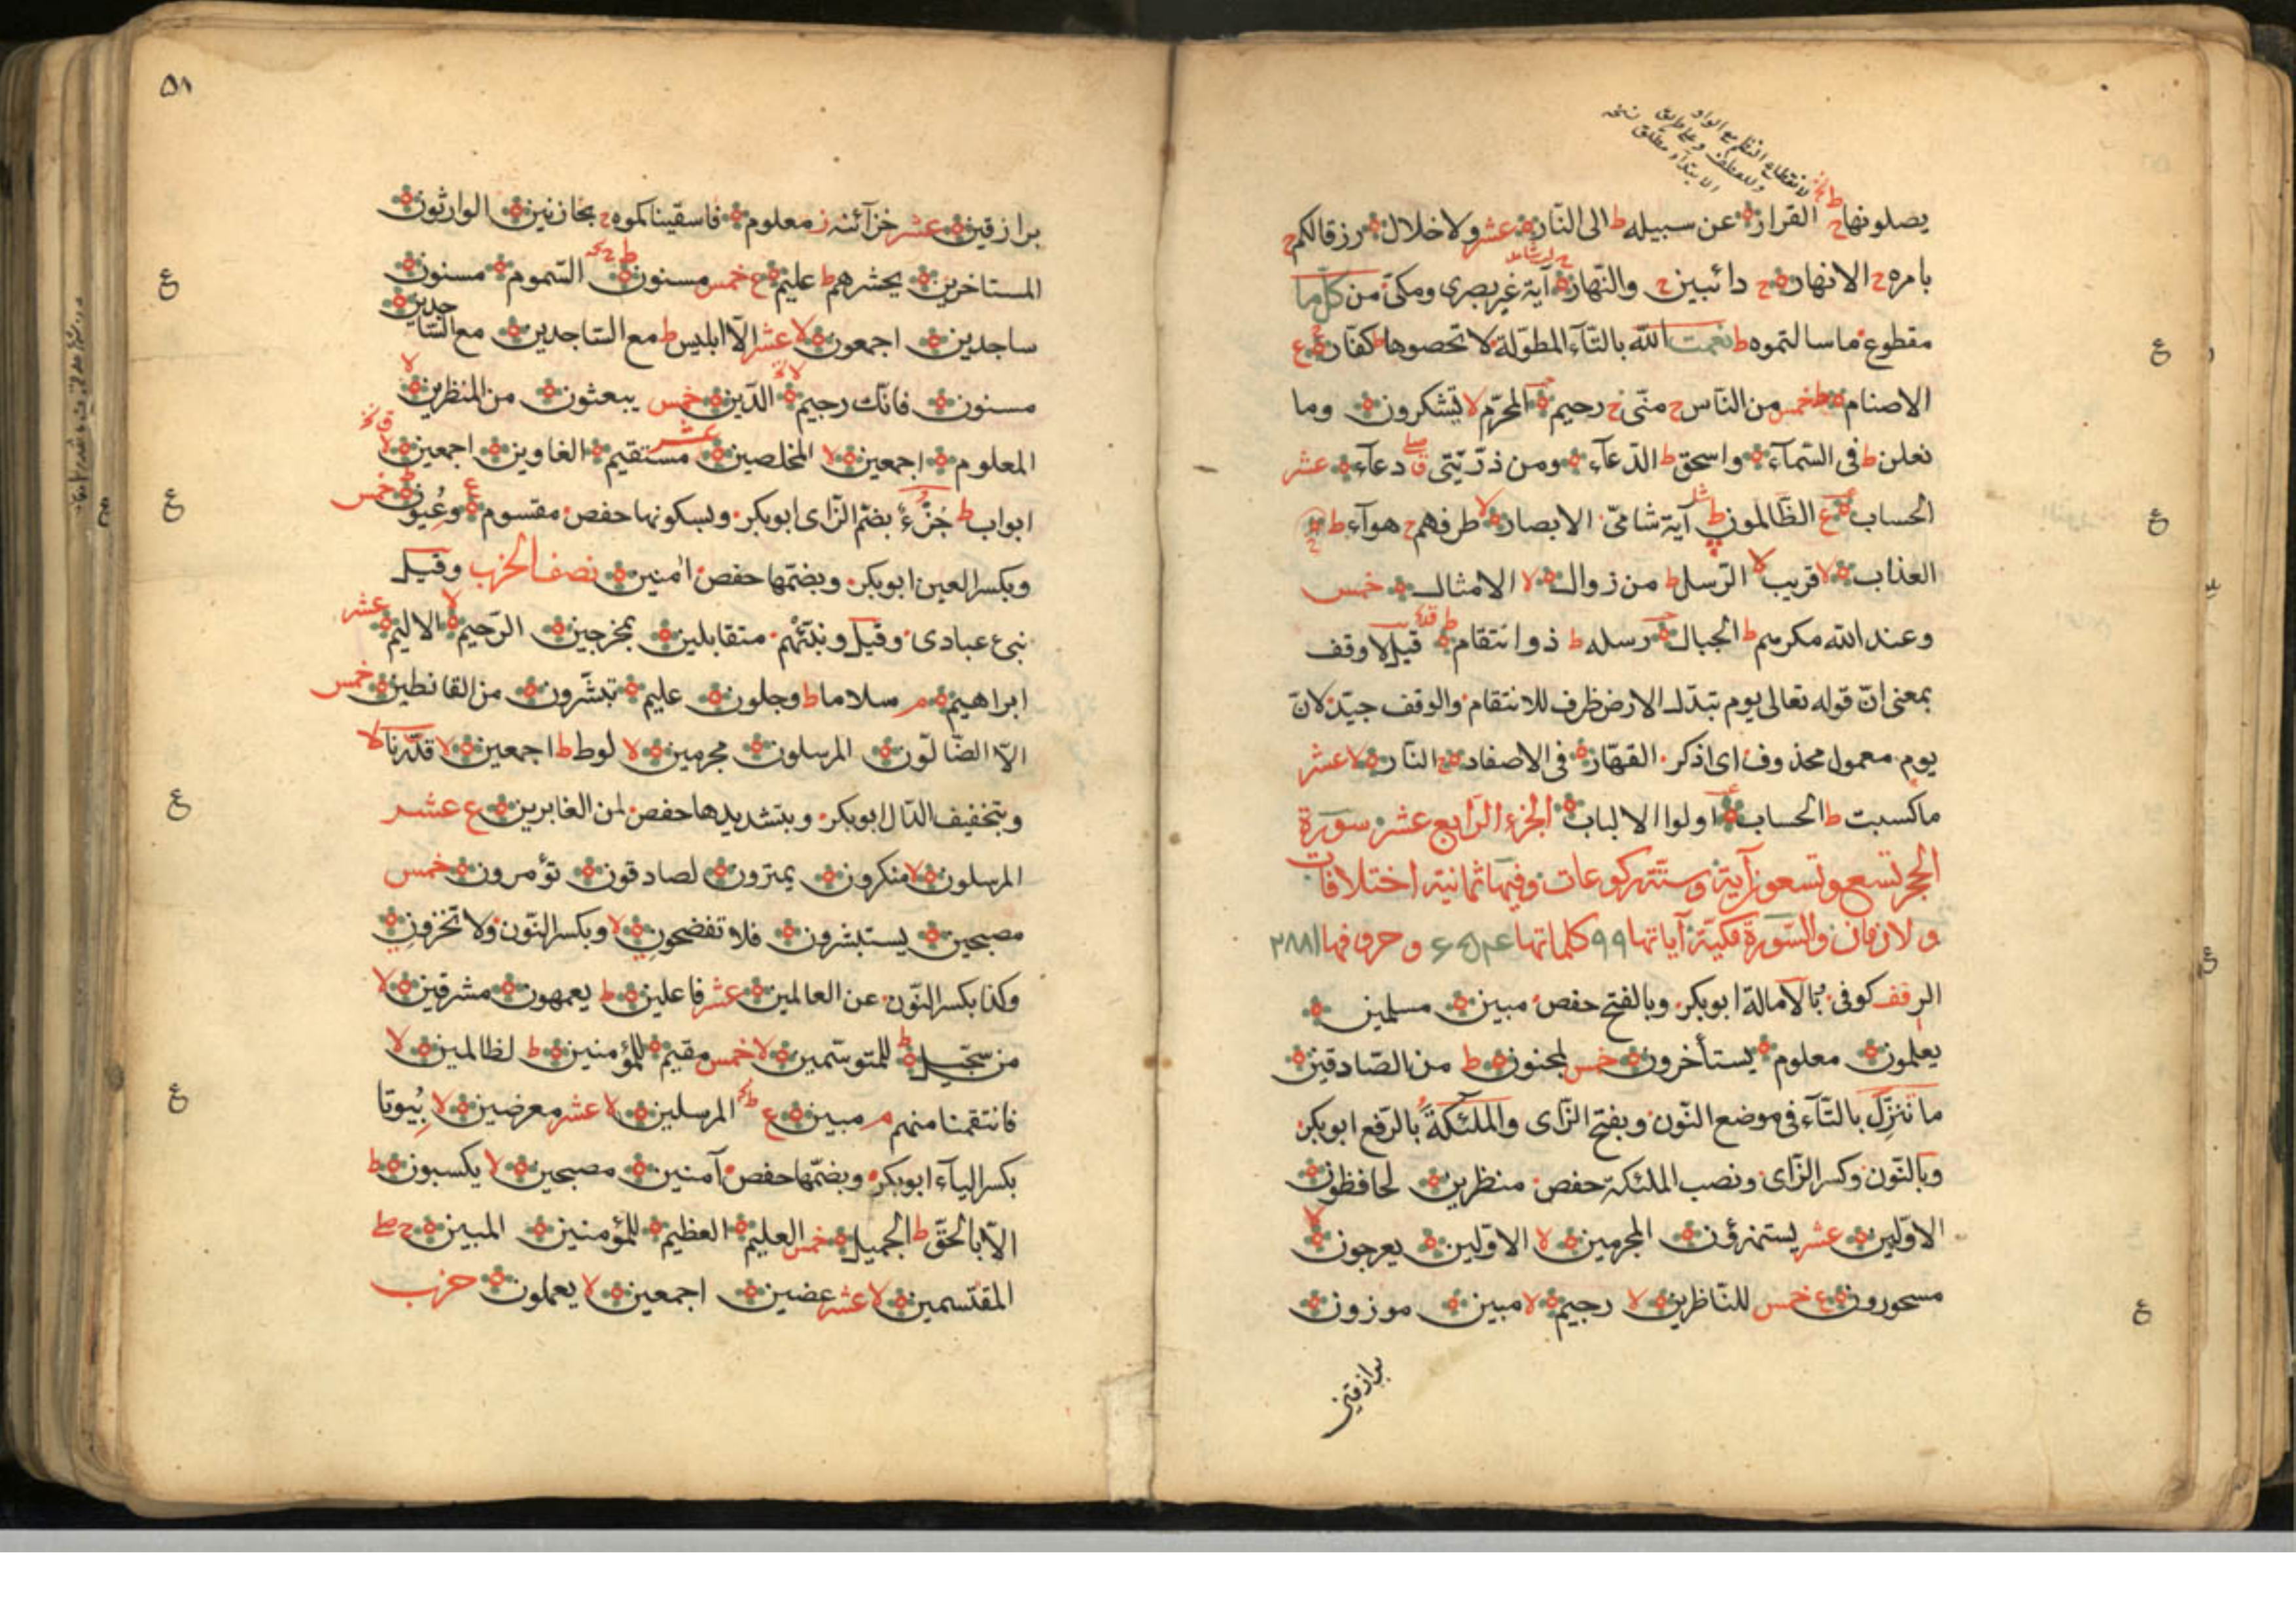 يصلونها ح القرار عن سبيله ط الى النّار عشر ولا خلال رزقا لكم ح
بامره ح الانهار ح دائبين ح والنّهار آية غير بصرى ومكىّ من كلّ ما
مقطوع ما سالتموه ط نعمت الله بالتّاء المطوّلة لا تحصوها ط كفّار ع
الاصنام ط خمس من النّاس ح منّى ج رحيم المحرّم لا يشكرون وما
نعلن ط فى السّماء واسحق ط الدّعاء ومن ذرّيّتى دعاء عشر
الحساب ع الظّالمون ط آية شامىّ الابصار لا طرفهم ح هوآء ط
العذاب لا قريب لا الرّسل ط من زوال لا الامثال خمس
وعند الله مكرهم ط الجبال رسله ط ذو انتقام ط قيل لا وقف
بمعنى انّ قوله تعالى يوم تبدّل الارض ظرف للانتقام والوقف جيّد لانّ
يوم معمول محذوف اى اذكر القهّار فى الاصفاد ح النّار لا عشر
ما كسبت ط الحساب اولوا الالباب الجزء الرّابع عشر سورة
الحجر تسع وتسعون آية وستّة ركوعات وفيها ثمانية اختلافات
والسّورة مكيّة آياتها ٩٩ كلماتها وحروفها ٢٨٨١
الر قف كوفى بالامالة ابوبكر وبالفتح حفص مبين مسلمين
يعلمون معلوم يستأخرون خمس لمجنون ط من الصّادقين
ما ننزّل بالتّاء فى موضع النّون وبفتح الزّاى والملئكة بالرّفع ابوبكر
وبالنّون وكسر الزّاى ونصب الملئكة حفص منظرين لحافظون
الاوّلين عشر يستهزؤن المجرمين لا الاوّلين يعرجون لا
مسحورون ع خمس للنّاظرين لا رجيم لا مبين موزون
برازقين
٥١
برازقين عشر خزآئنه ز معلوم فاسقيناكموه ج بخازنين الوارثون
المستاخرين يحشرهم ط عليم ع خمس مسنون السّموم مسنون
ساجدين اجمعون لا عشر الّا ابليس ط مع السّاجدين مع السّاجدين
مسنون فانّك رجيم لا الدّين خمس يبعثون من المنظرين لا
المعلوم اجمعين لا المخلصين عشر مستقيم الغاوين اجمعين
ابواب ط جزء بضمّ الزّاى ابوبكر وبسكونها حفص مقسوم ع وعيون خمس
وبكسر العين ابوبكر وبضمّها حفص امنين نصف الحزب وقيل
نبئ عبادى وقيل ونبّئهم متقابلين بمخرجين الرّحيم لا الاليم عشر
ابراهيم م سلاما ط وجلون عليم تبشّرون من القانطين خمس
الّا الضّالّون المرسلون مجرمين لا لوط ط اجمعين لا قدّرنا لا
وبتخفيف الدّال ابوبكر وبتشديدها حفص لمن الغابرين ع عشر
المرسلون لا منكرون يمترون لصادقون تؤمرون خمس
مصبحين يستبشرون فلا تفضحون لا وبكسر النّون ولا تخزون
وكذا بكسر النّون عن العالمين عشر فاعلين ط يعمهون مشرقين لا
من سجّيل ط للمتوسّمين لا خمس مقيم للمؤمنين ط لظالمين لا
فانتقمنا منهم م مبين ع المرسلين لا عشر معرضين لا بيوتا
بكسر الباء ابوبكر وبضمّها حفص آمنين مصبحين لا يكسبون ط
الّا بالحقّ ط الجميل خمس العليم العظيم للمؤمنين المبين ج
المقتسمين لا عشر عضين اجمعين لا يعملون حزب